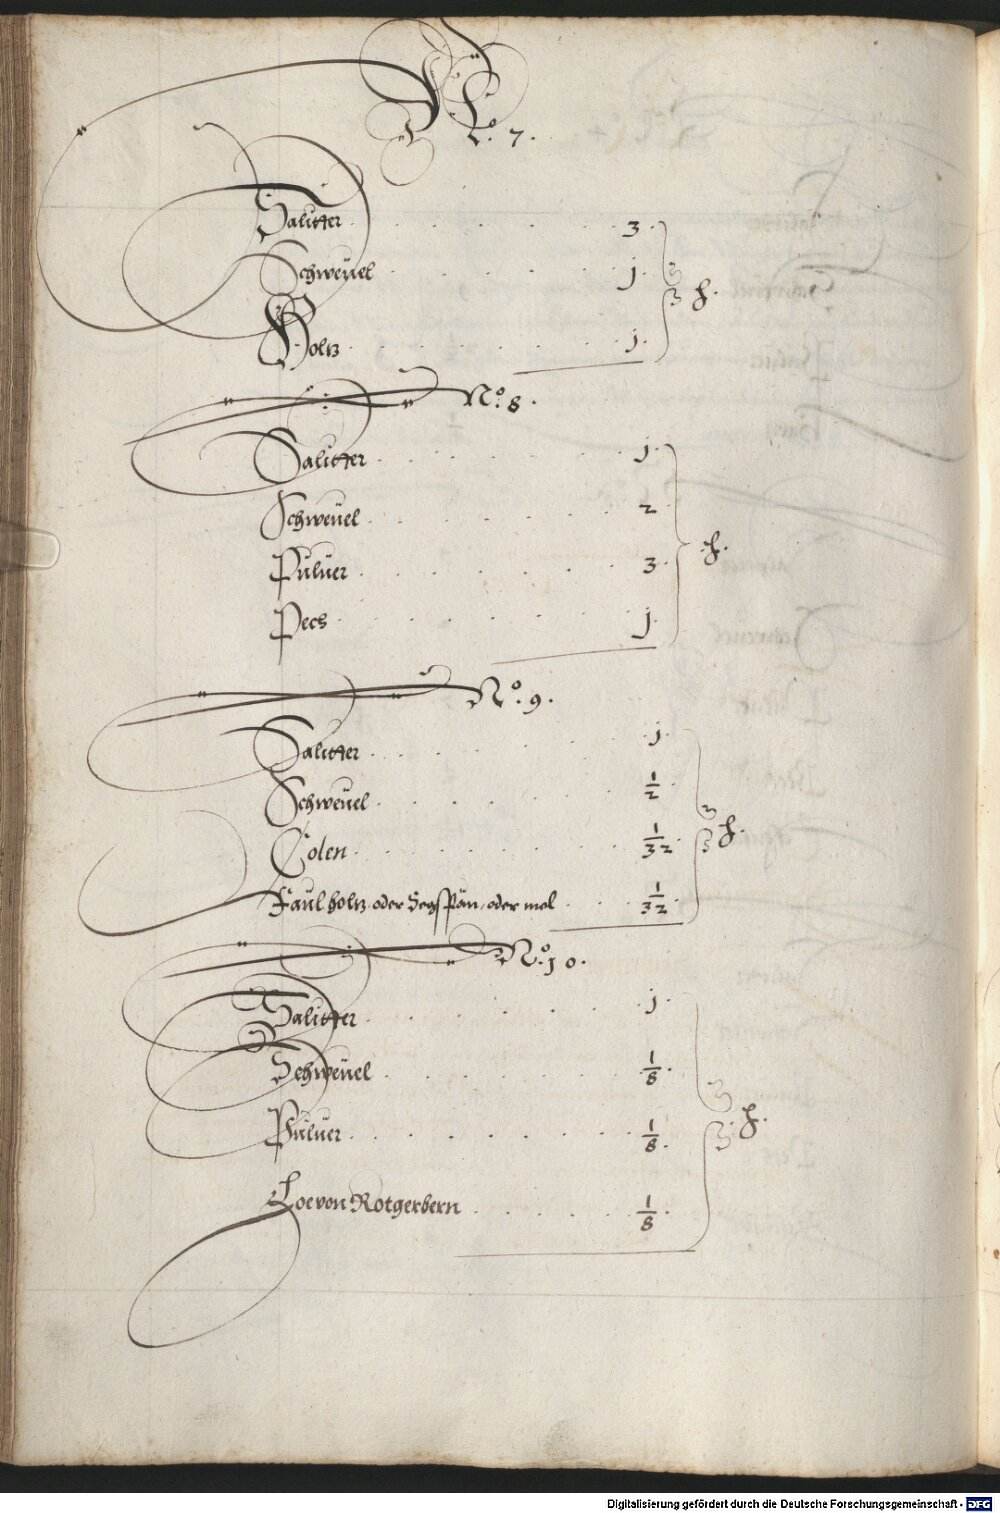 No. 7.
Salitter . . . . . . 3.
Schweuel . . . . . . j. ℔.
Holtz . . . . . . j.
No. 8.
Salitter . . . . . . j.
Schweuel . . . . . . 2.
Puluer . . . . . . 3. ℔.
Pech . . . . . . j.
No. 9.
Salitter . . . . . . j.
Schweuel . . . . . . 1/2.
Colen . . . . . . 1/32. ℔.
Faulholtz oder Segspän, oder mel . . . 1/32.
No. 10.
Salitter . . . . . . j.
Schweuel . . . . . . 1/8.
Puluer . . . . . . 1/8. ℔.
Loe von Rotgerbern . . . . . 1/8.
Digitalisierung gefördert durch die Deutsche Forschungsgemeinschaft - DFG